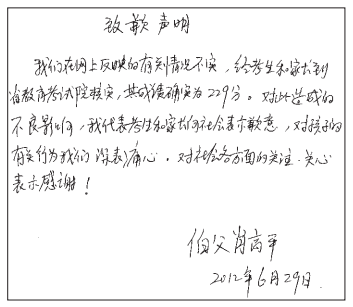 致歉声明
我们在网上反映的有关情况不实，经考生和家长到
省教育考试院核实，其成绩确实为229分。对此造成的
不良影响，我代表考生和家长向社会表示歉意，对孩子的
有关行为我们深表痛心。对社会各方面的关注、关心
表示感谢！
伯父肖高平
2012年6月29日.